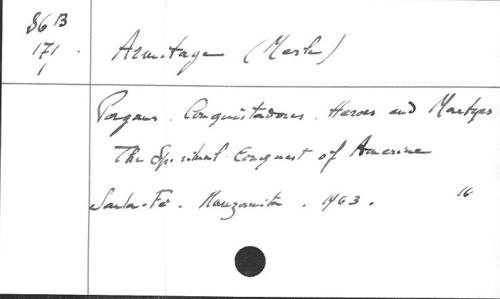 86 B
171.
1
Armitage (Merle)
Pagans. Conquistadores. Heroes and Martyrs
The Spiritual Conquest of America
Santa-Fé. Manzanita. 1963. 16